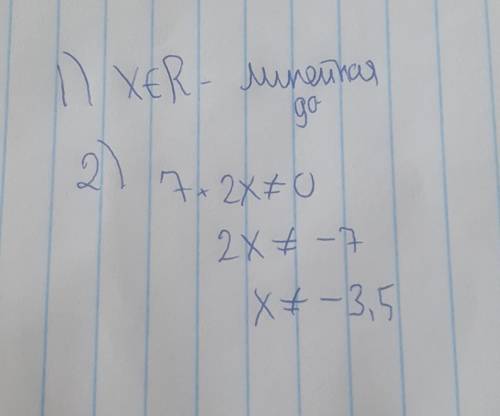 1) X∈R - линейная
до
2) 7 + 2x ≠ 0
2x ≠ -7
x ≠ -3,5